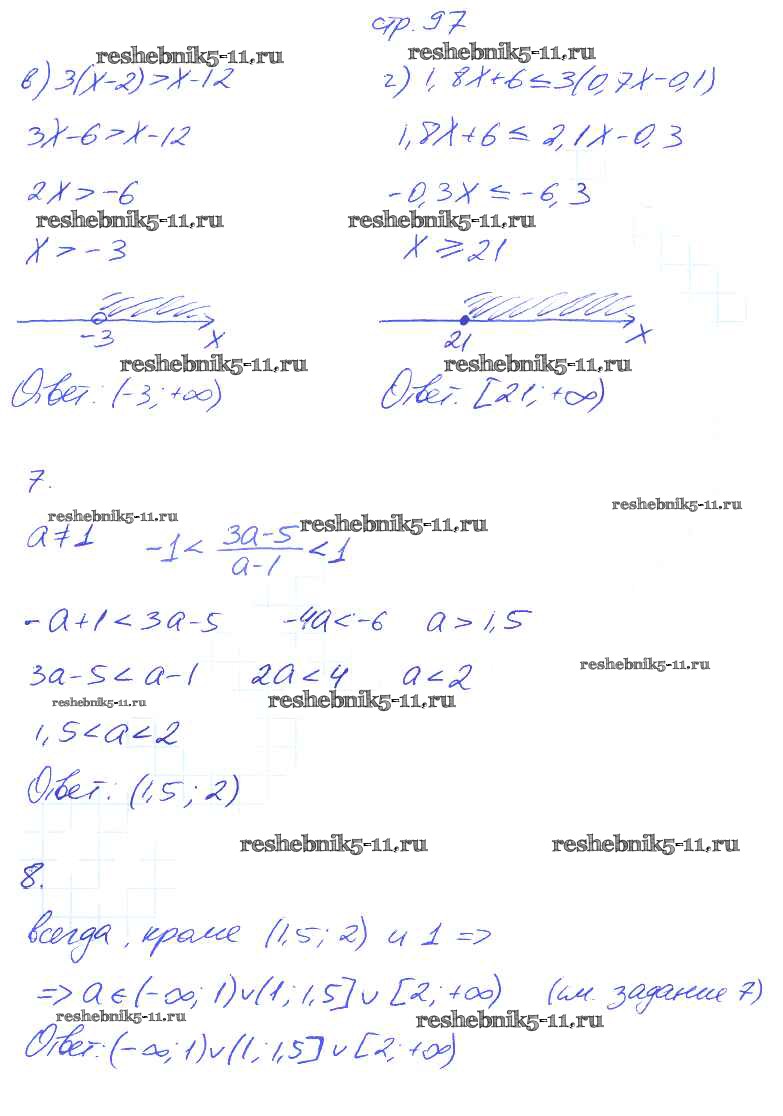 стр. 97
reshebnik5-11.ru reshebnik5-11.ru
в) 3(x-2)>x-12 г) 1,8x+6≤3(0,7x-0,1)
3x-6>x-12 1,8x+6≤2,1x-0,3
2x>-6 -0,3x≤-6,3
reshebnik5-11.ru reshebnik5-11.ru
x>-3 x≥21
-3 x 21 x
reshebnik5-11.ru reshebnik5-11.ru
Ответ: (-3; +∞) Ответ: [21; +∞)
7.
reshebnik5-11.ru reshebnik5-11.ru reshebnik5-11.ru
a≠1 -1 < (3a-5)/(a-1) < 1
-a+1<3a-5 -4a<-6 a>1,5
3a-5<a-1 2a<4 a<2 reshebnik5-11.ru
reshebnik5-11.ru reshebnik5-11.ru
1,5<a<2
Ответ: (1,5; 2)
reshebnik5-11.ru reshebnik5-11.ru
8.
всегда, кроме (1,5; 2) и 1 =>
=> a ∈ (-∞; 1)∪(1; 1,5]∪[2; +∞) (см. задание 7)
reshebnik5-11.ru reshebnik5-11.ru
Ответ: (-∞; 1)∪(1; 1,5]∪[2; +∞)